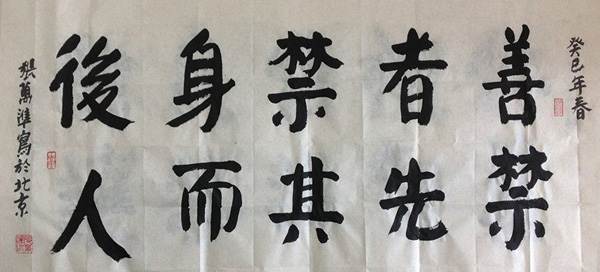 癸巳年春
善禁
者先
禁其
身而
後人
張萬準寫於北京